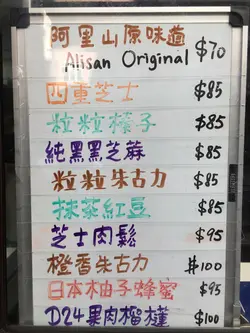 阿里山原味道
Alisan Original $70
四重芝士 $85
粒粒榛子 $85
純黑黑芝蔴 $85
粒粒朱古力 $85
抹茶紅豆 $85
芝士肉鬆 $95
橙香朱古力 $100
日本柚子蜂蜜 $95
D24果肉榴槤 $100